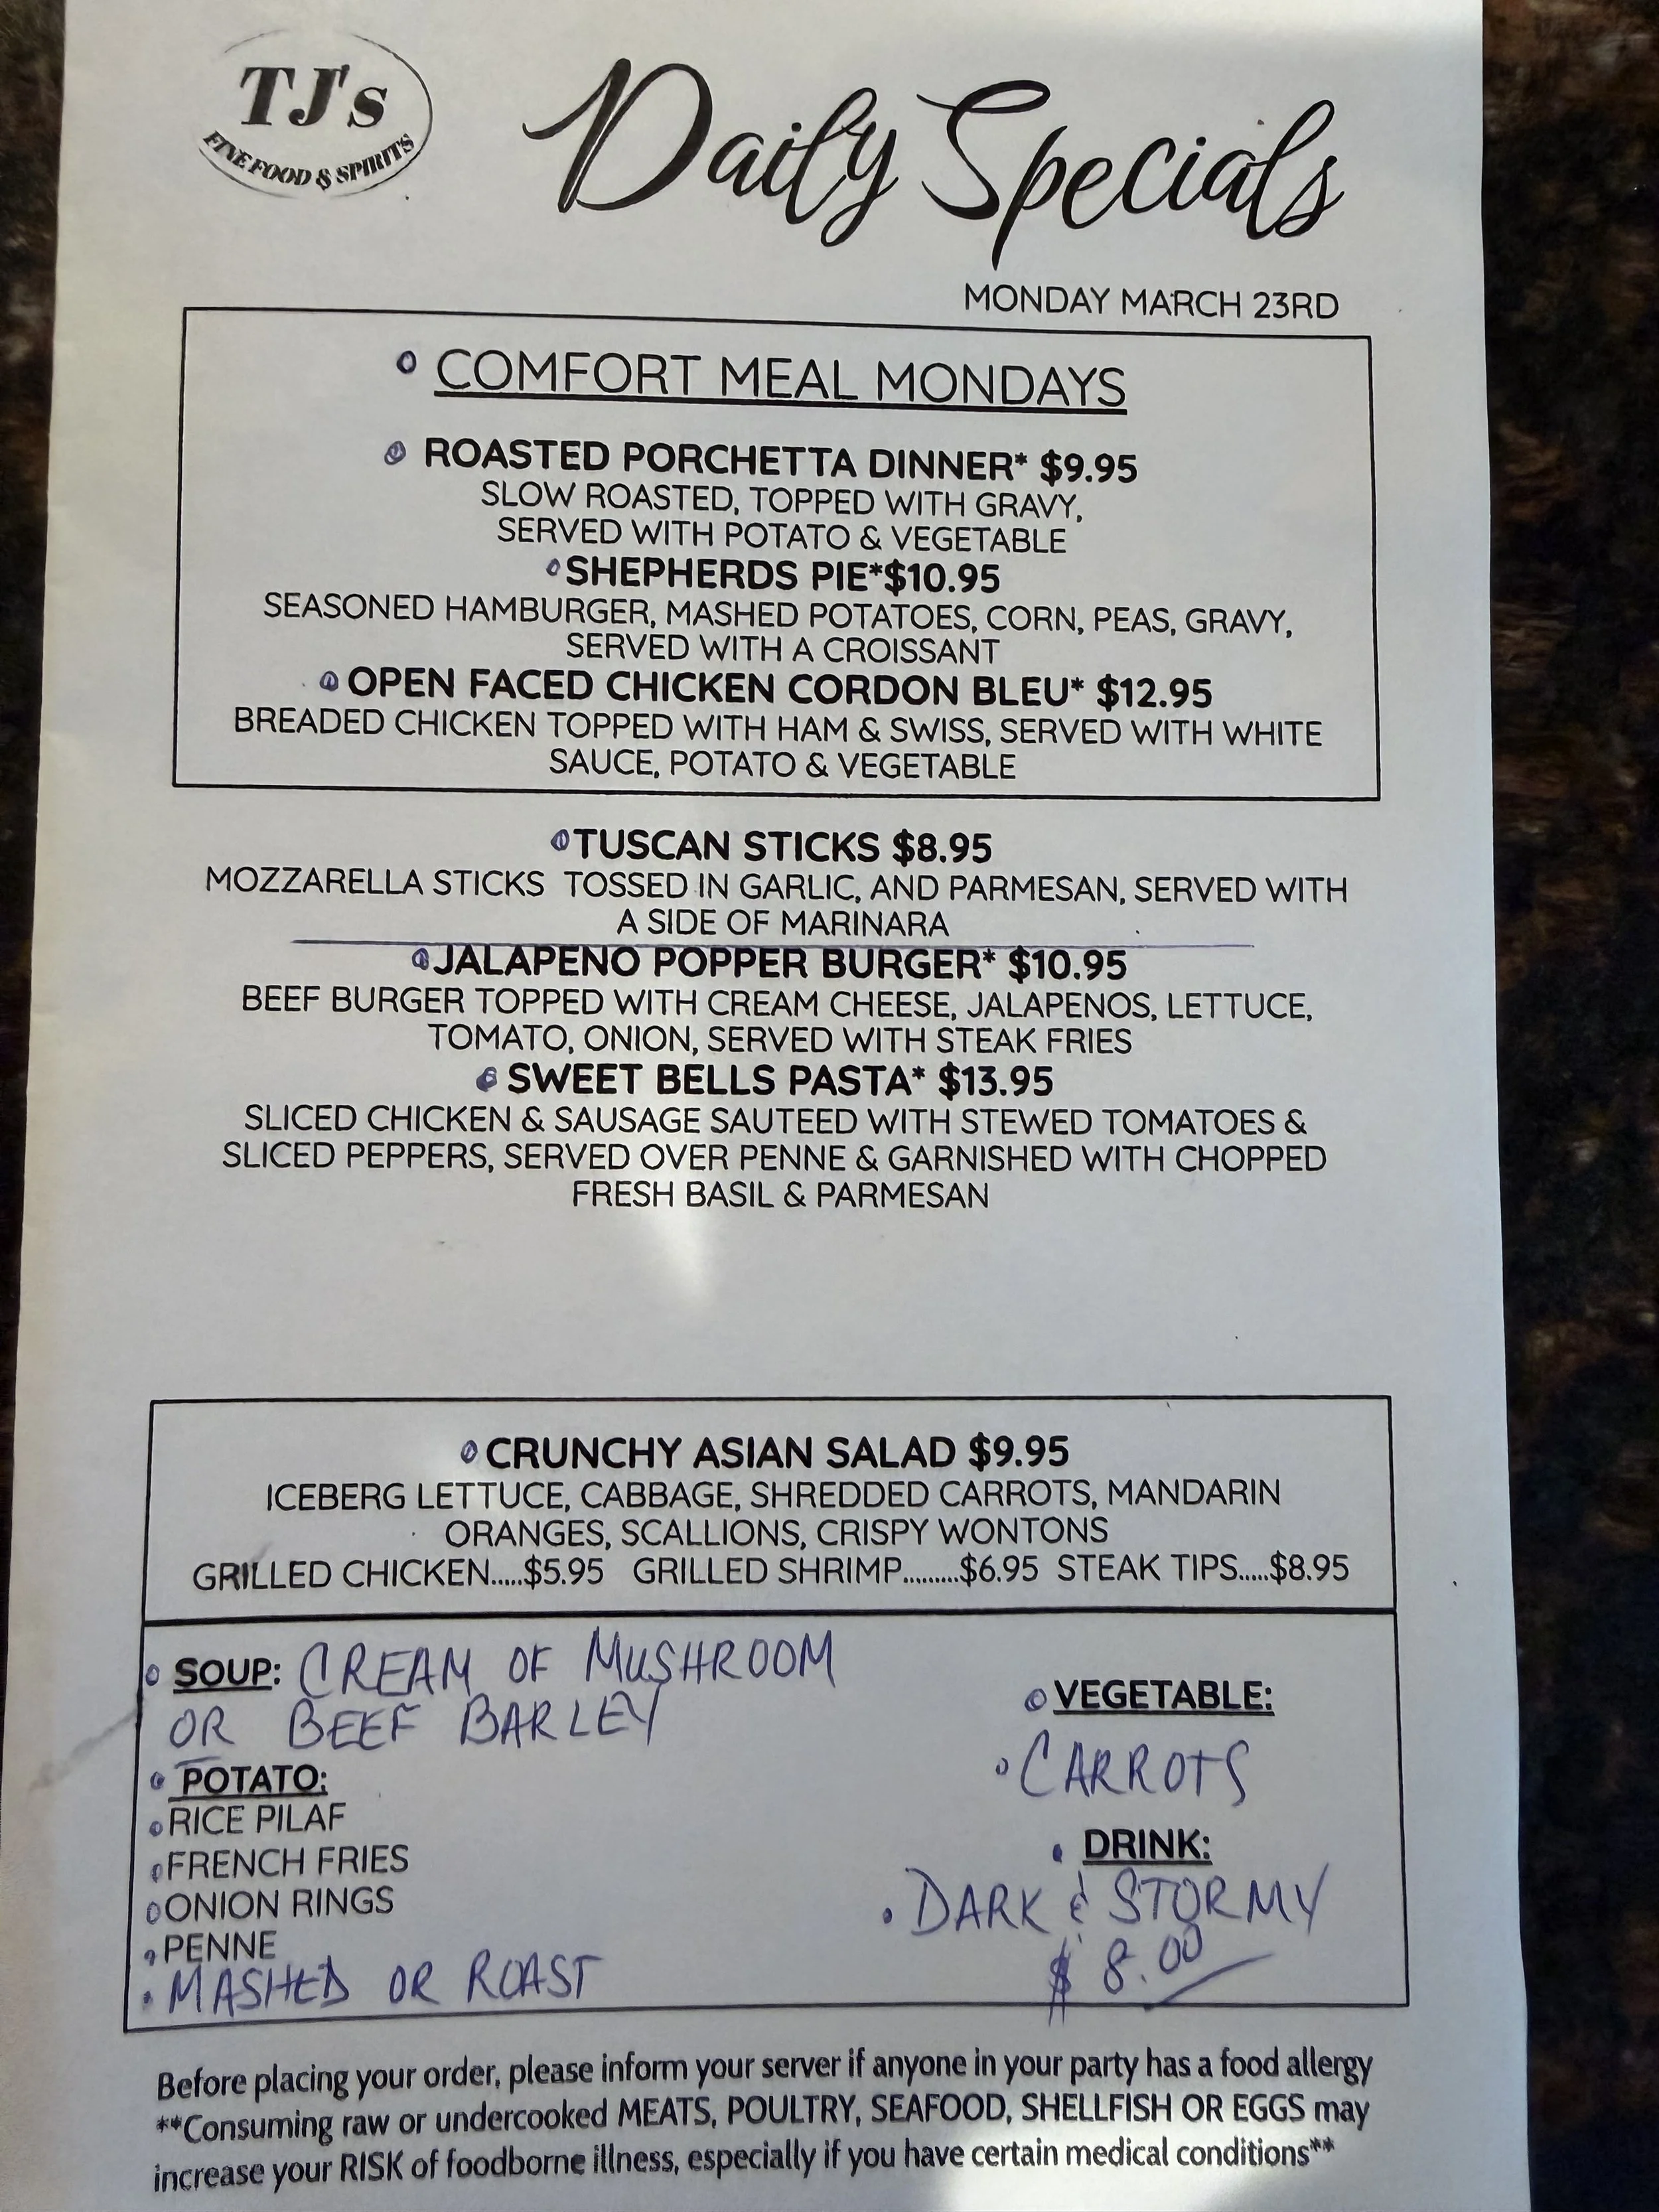 TJ's
FINE FOOD & SPIRITS
Daily Specials
MONDAY MARCH 23RD
COMFORT MEAL MONDAYS
ROASTED PORCHETTA DINNER* $9.95
SLOW ROASTED, TOPPED WITH GRAVY,
SERVED WITH POTATO & VEGETABLE
SHEPHERDS PIE*$10.95
SEASONED HAMBURGER, MASHED POTATOES, CORN, PEAS, GRAVY,
SERVED WITH A CROISSANT
OPEN FACED CHICKEN CORDON BLEU* $12.95
BREADED CHICKEN TOPPED WITH HAM & SWISS, SERVED WITH WHITE
SAUCE, POTATO & VEGETABLE
TUSCAN STICKS $8.95
MOZZARELLA STICKS TOSSED IN GARLIC, AND PARMESAN, SERVED WITH
A SIDE OF MARINARA
JALAPENO POPPER BURGER* $10.95
BEEF BURGER TOPPED WITH CREAM CHEESE, JALAPENOS, LETTUCE,
TOMATO, ONION, SERVED WITH STEAK FRIES
SWEET BELLS PASTA* $13.95
SLICED CHICKEN & SAUSAGE SAUTEED WITH STEWED TOMATOES &
SLICED PEPPERS, SERVED OVER PENNE & GARNISHED WITH CHOPPED
FRESH BASIL & PARMESAN
CRUNCHY ASIAN SALAD $9.95
ICEBERG LETTUCE, CABBAGE, SHREDDED CARROTS, MANDARIN
ORANGES, SCALLIONS, CRISPY WONTONS
GRILLED CHICKEN.....$5.95 GRILLED SHRIMP.........$6.95 STEAK TIPS.....$8.95
SOUP: CREAM OF MUSHROOM
OR BEEF BARLEY
POTATO:
RICE PILAF
FRENCH FRIES
ONION RINGS
PENNE
MASHED OR ROAST
VEGETABLE:
CARROTS
DRINK:
DARK & STORMY
$ 8.00
Before placing your order, please inform your server if anyone in your party has a food allergy
**Consuming raw or undercooked MEATS, POULTRY, SEAFOOD, SHELLFISH OR EGGS may
increase your RISK of foodborne illness, especially if you have certain medical conditions**